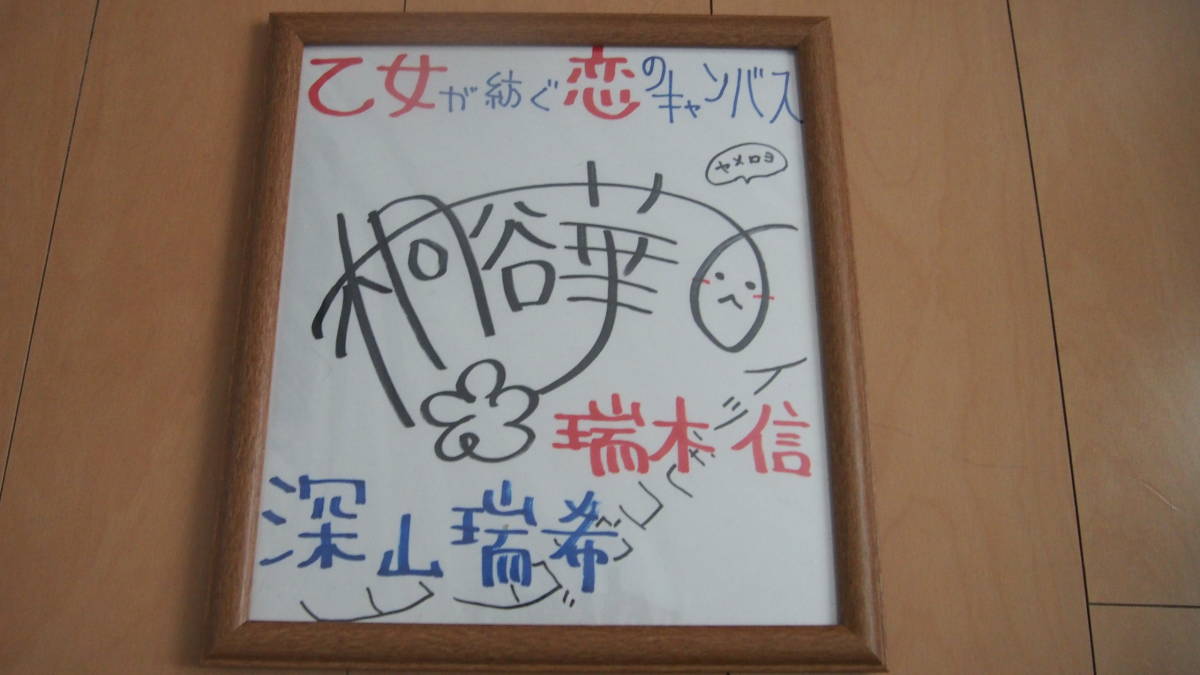 乙女が紡ぐ恋のキャンバス
ヤメロヨ
桐谷華
瑞木 信
深山瑞希